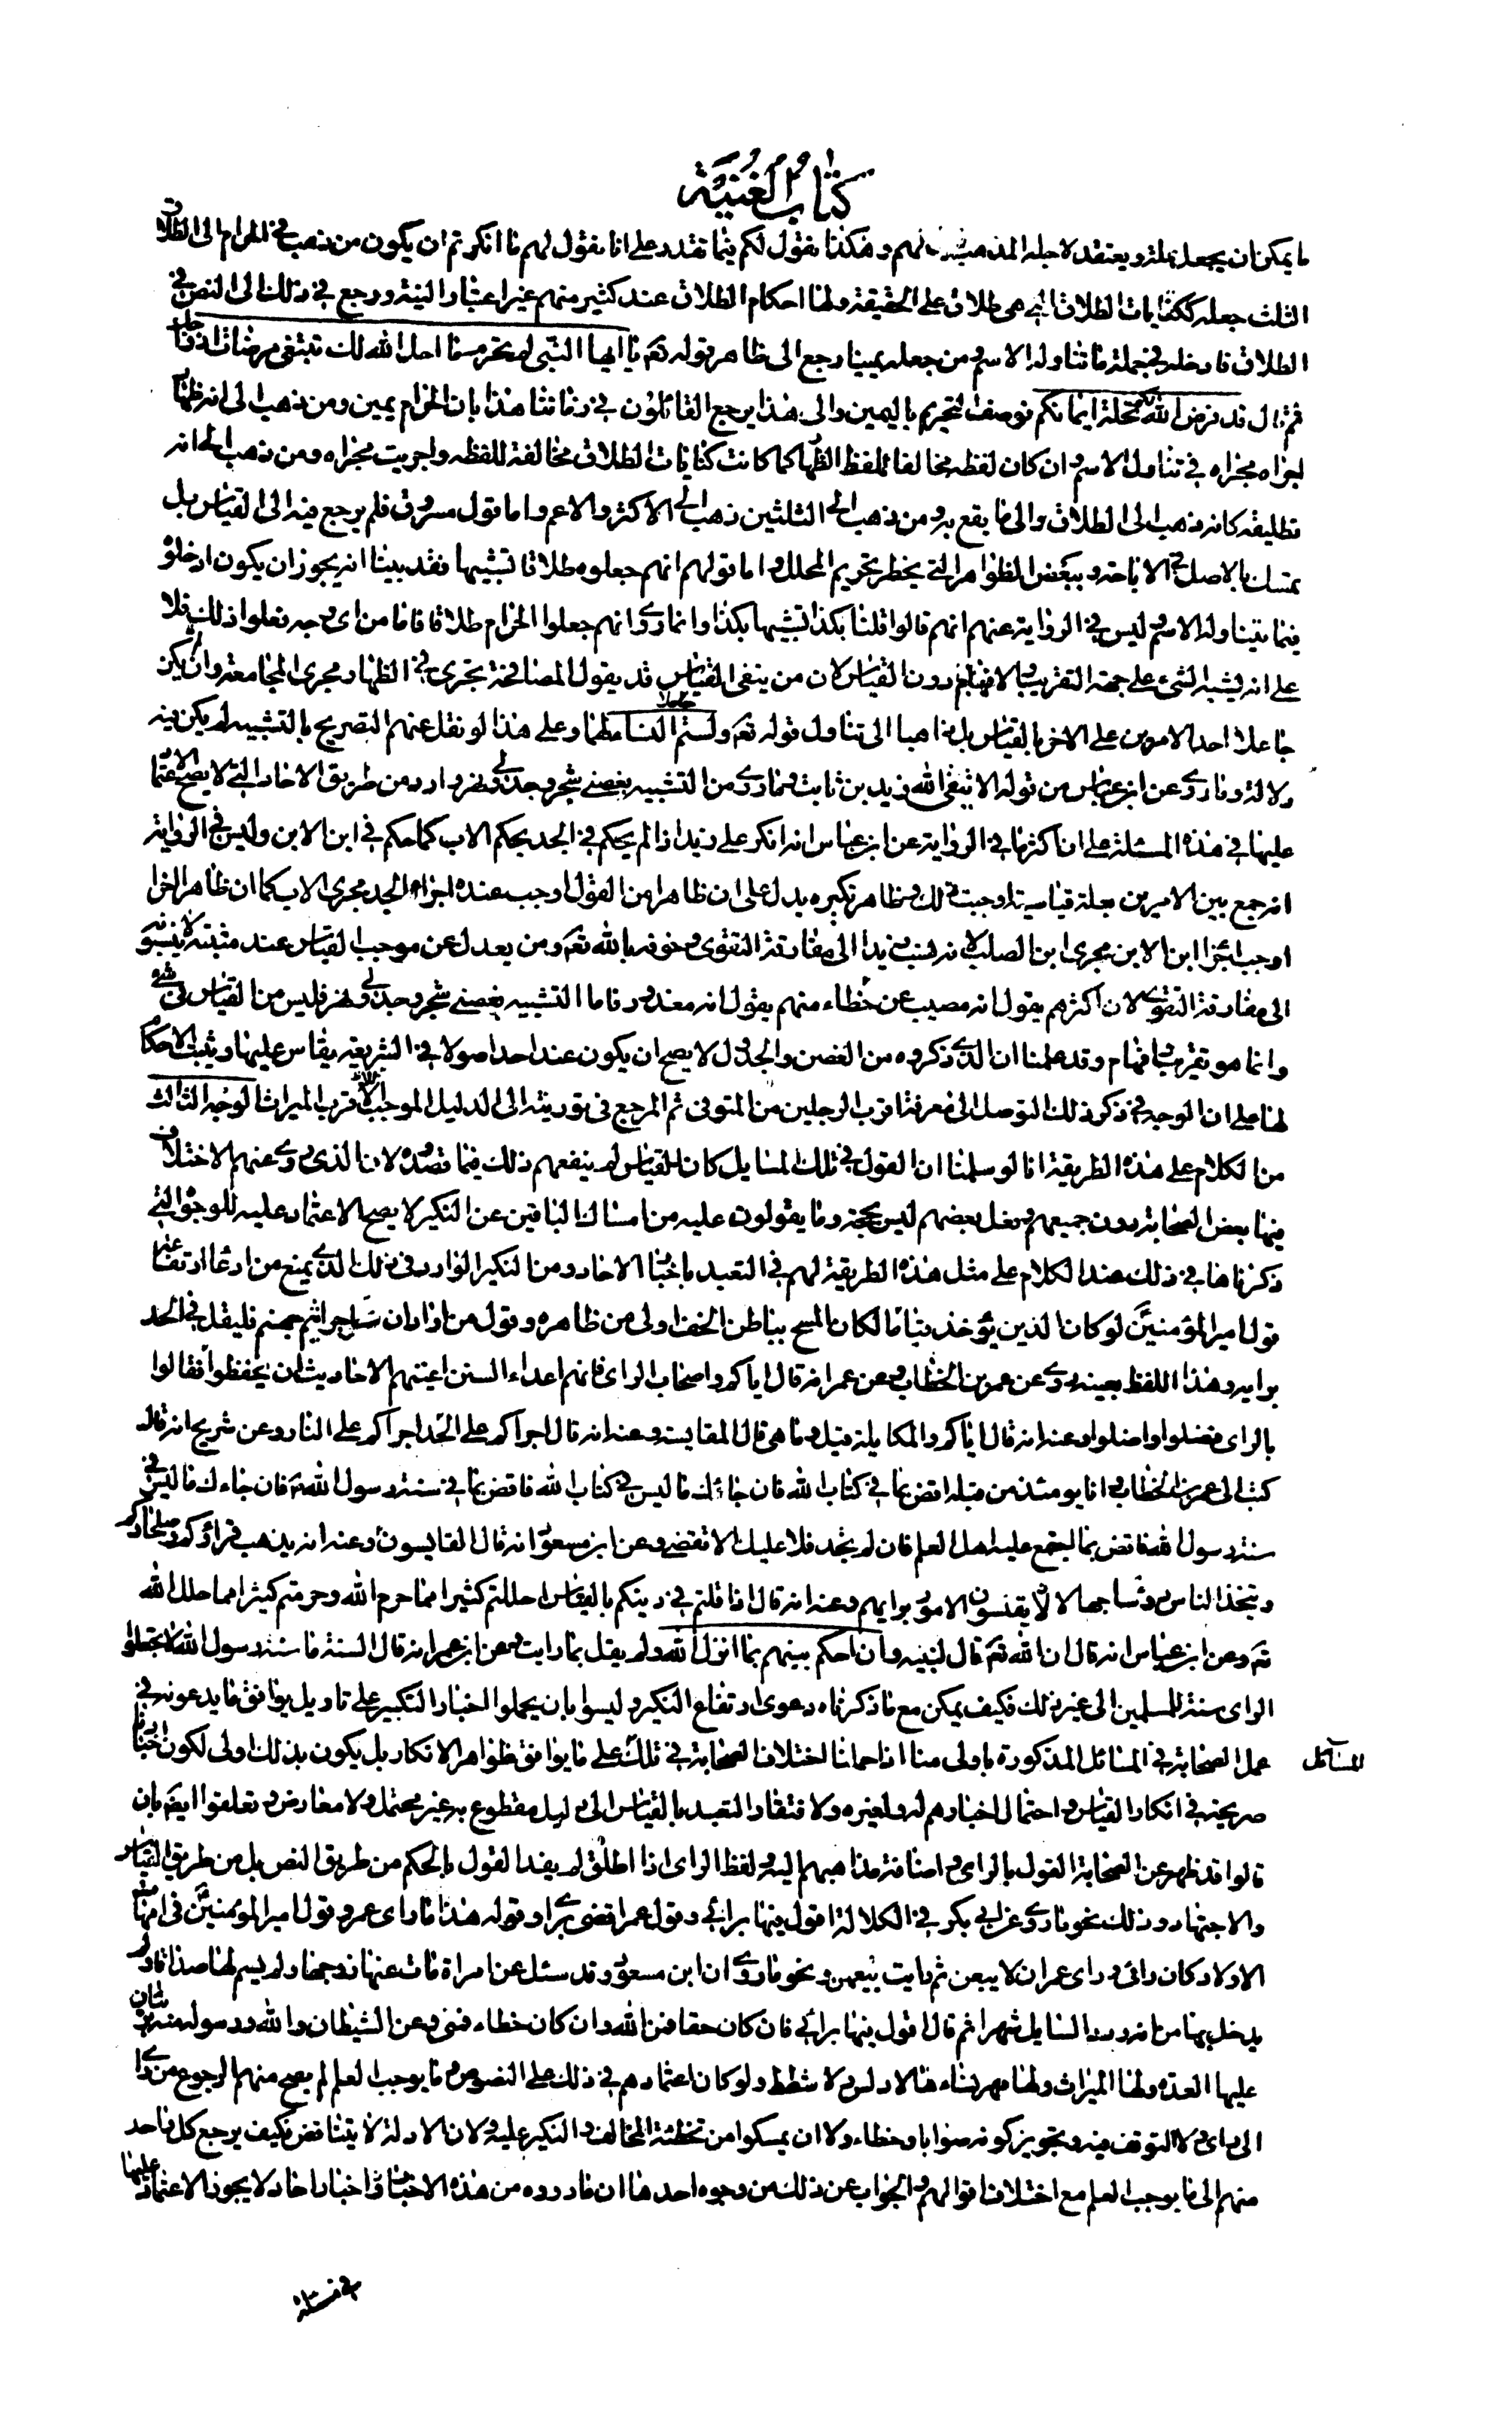 كتاب الغنية
ما يمكن ان يجعل علة ويعتقد لاجله المذهب لهم وهكذا يقول لكم فيما تقدم على انا نقول لهم ما انكرتم ان يكون من ذهب في الحرام الى الطلاق
الثلث جعله ككنايات الطلاق التي هي طلاق على الحقيقة ولها احكام الطلاق عند كثير منهم غير اعتبار النية ورجع في ذلك الى النص في
الطلاق فادخله في جملة ما تناوله الاسم ومن جعله يمينا رجع الى ظاهر قوله تعه يا ايها النبي لم تحرم ما احل الله لك تبتغي مرضات ازواجك
ثم قال قد فرض الله لكم تحلة ايمانكم فوصف التحريم باليمين والى هذا يرجع القائلون في زماننا هذا بان الحرام يمين ومن ذهب الى انه ظهار
اجراه مجراه في تناول الاسم وان كان لفظه مخالفا للفظ الظهار كما كانت كنايات الطلاق مخالفة للفظه واجريت مجراه ومن ذهب الى انه
تطليقة كانه ذهب الى الطلاق والى ما يقع به ومن ذهب الى الثلثين ذهب الى الاكثر والاعم واما قول مسروق فلم يرجع فيه الى القياس بل
تمسك بالاصل في الاباحة وببعض الظواهر التي يحظر تحريم المحلل واما قولهم انهم جعلوه طلاقا تشبيها فقد بينا انه يجوز ان يكون ادخلوه
فيما يتناوله الاسم وليس في الرواية عنهم انهم قالوا قلنا بكذا تشبيها بكذا وانما روي انهم جعلوا الحرام طلاقا فاما من اي وجه فعلوا ذلك فلا
على انه يشبه الشيء على جهة التقريب والافهام دون القياس لان من ينفي القياس قد يقول المصافحة تجري في الظهار مجرى المجامعة وان لم يكن
جاعلا احد الامرين على الاخر بالقياس بل ذاهبا الى تناول قوله تعه ولستم النساء لهما وعلى هذا لو نقل عنهم التصريح بالتشبيه لم يكن فيه
دلالة وما روي عن ابن عباس من قوله الا يتقي الله زيد بن ثابت وما روي من التشبيه بغصني شجر وجدولي نهر وارد من طريق الاحاد التي لا يصح الاعتماد
عليها في هذه المسئلة على ان اكثر ما في الرواية عن ابن عباس انه انكر على زيد اذ لم يحكم في الجد بحكم الاب كما حكم في ابن الابن وليس في الرواية
انه جمع بين الامرين بعلة قياسية اوجبت ذلك وظاهر نكيره يدل على ان ظاهرا من القول اوجب عنده اجراء الجد مجرى الاب كما ان ظاهرا اخر
اوجب اجراء ابن الابن مجرى ابن الصلب لانه نسب زيدا الى مفارقة التقوى وخوفه بالله تعه ومن يعدل عن موجب القياس عند مثبتيه لا ينسبونه
الى مفارقة التقوى لان اكثرهم يقول انه مصيب عن خطاء منهم يقول انه معذور فاما التشبيه بغصني شجر وجدولي نهر فليس من القياس في شيء
وانما هو تقريب وافهام وقد علمنا ان الذي ذكروه من الغصن والجدول لا يصح ان يكون عند احد اصولا في الشريعة يقاس عليها ويثبت الاحكام
لها على ان الوجه في ذكر ذلك التوصل الى معرفة اقرب الرجلين من المتوفى ثم المرجع في توريثه الى الدليل الموجب للاقرب الميراث الوجه الثالث
من الكلام على هذه الطريقة انا لو سلمنا ان القول في تلك المسايل كان للقياس لم ينفعهم ذلك فيما قصدوه لان الذي روي عنهم الاختلاف
فيها بعض الصحابة دون جميعهم وفعل بعضهم ليس بحجة وما يقولون عليه من امساك الباقين عن النكير لا يصح الاعتماد عليه للوجوه التي
ذكرناها في ذلك عند الكلام على مثل هذه الطريقة لهم في التعبد باخبار الاحاد ومن النكير الوارد في ذلك الذي يمنع من ادعاء ارتفاعه
قول امير المؤمنين لو كان الدين يؤخذ قياسا لكان المسح بباطن الخف اولى من ظاهره وقوله من اراد ان جراثيم جهنم فليقل في الجد
برايه وهذا اللفظ بعينه روي عن عمر بن الخطاب وعن عمر انه قال اياكم واصحاب الراي فانهم اعداء السنن اعيتهم الاحاديث ان يحفظوها فقالوا
بالراي فضلوا واضلوا وعنه انه قال اياكم والمكايلة قيل وما هي قال المقايسة وعنه انه قال اجراكم على الجد اجراكم على النار وعن شريح انه قال
كتب الى عمر بن الخطاب وانا يومئذ من قبله اقض بما في كتاب الله فان جاءك ما ليس في كتاب الله فاقض بما في سنة رسول الله فان جاءك ما ليس في
سنة رسول الله فاقض بما اجتمع عليه اهل العلم فان لم تجد فلا عليك الا تقضي وعن ابن مسعود انه قال القايسون وعنه انه يذهب قراؤكم وصلحاؤكم
ويتخذ الناس رؤسا جهالا يقيسون الامور برايهم وعنه انه قال اذا قلتم في دينكم بالقياس احللتم كثيرا مما حرم الله وحرمتم كثيرا مما حلل الله
تعه وعن ابن عباس انه قال ان الله تعه قال لنبيه وان احكم بينهم بما انزل الله ولم يقل بما رايت وعن ابن عمر انه قال السنة ما سنه رسول الله لا تجعلوا
الراي سنة للمسلمين الى غير ذلك فكيف يمكن مع ما ذكرناه دعوى ارتفاع النكير وليسوا بان يحملوا اخبار النكير على تاويل يوافق ما يدعونه في
عمل الصحابة في المسائل المذكورة باولى منا اذا حملنا اختلاف الصحابة في تلك المسائل على ما يوافق ظواهر الانكار بل يكون بذلك اولى لكون اخبارنا
صريحة في انكار القياس واحتمال اخبارهم له ولغيره ولافتقار التعبد بالقياس الى دليل مقطوع به غير محتمل ولا معارض وتعلقوا ايضا بان
قالوا قد ظهر عن الصحابة القول بالراي واضافة مذاهبهم اليه ولفظ الراي اذا اطلق لم يفد القول بالحكم من طريق النص بل من طريق القياس
والاجتهاد وذلك نحو ما روي عن ابي بكر في الكلالة اقول فيها برائي وقول عمر اقضي براي وقوله هذا ما راى عمر وقول امير المؤمنين في امهات
الاولاد كان رائي وراي عمر ان لا يبعن ثم رايت بيعهن ونحو ما روي ان ابن مسعود وقد سئل عن امراة مات عنها زوجها ولم يسم لها صداقا ولم
يدخل بها من انه ردد السايل شهرا ثم قال اقول فيها برائي فان كان حقا فمن الله وان كان خطاء فمني ومن الشيطان والله ورسوله منه بريئان
عليها العدة ولها الميراث ولها مهر نساءها لا وكس ولا شطط ولو كان اعتمادهم في ذلك على النصوص وما يوجب العلم لم يصح منهم الرجوع من راي
الى راي ولا التوقف فيه وتجويز كونه صوابا وخطاء ولا ان يمسكوا من تخطئة المخالف والنكير عليه ولان الادلة لا يتناقض فكيف يرجع كل واحد
منهم الى ما يوجب العلم مع اختلاف اقوالهم والجواب عن ذلك من وجوه احدها ان ما رووه من هذه الاخبار اخبار احاد لا يجوز الاعتماد عليها